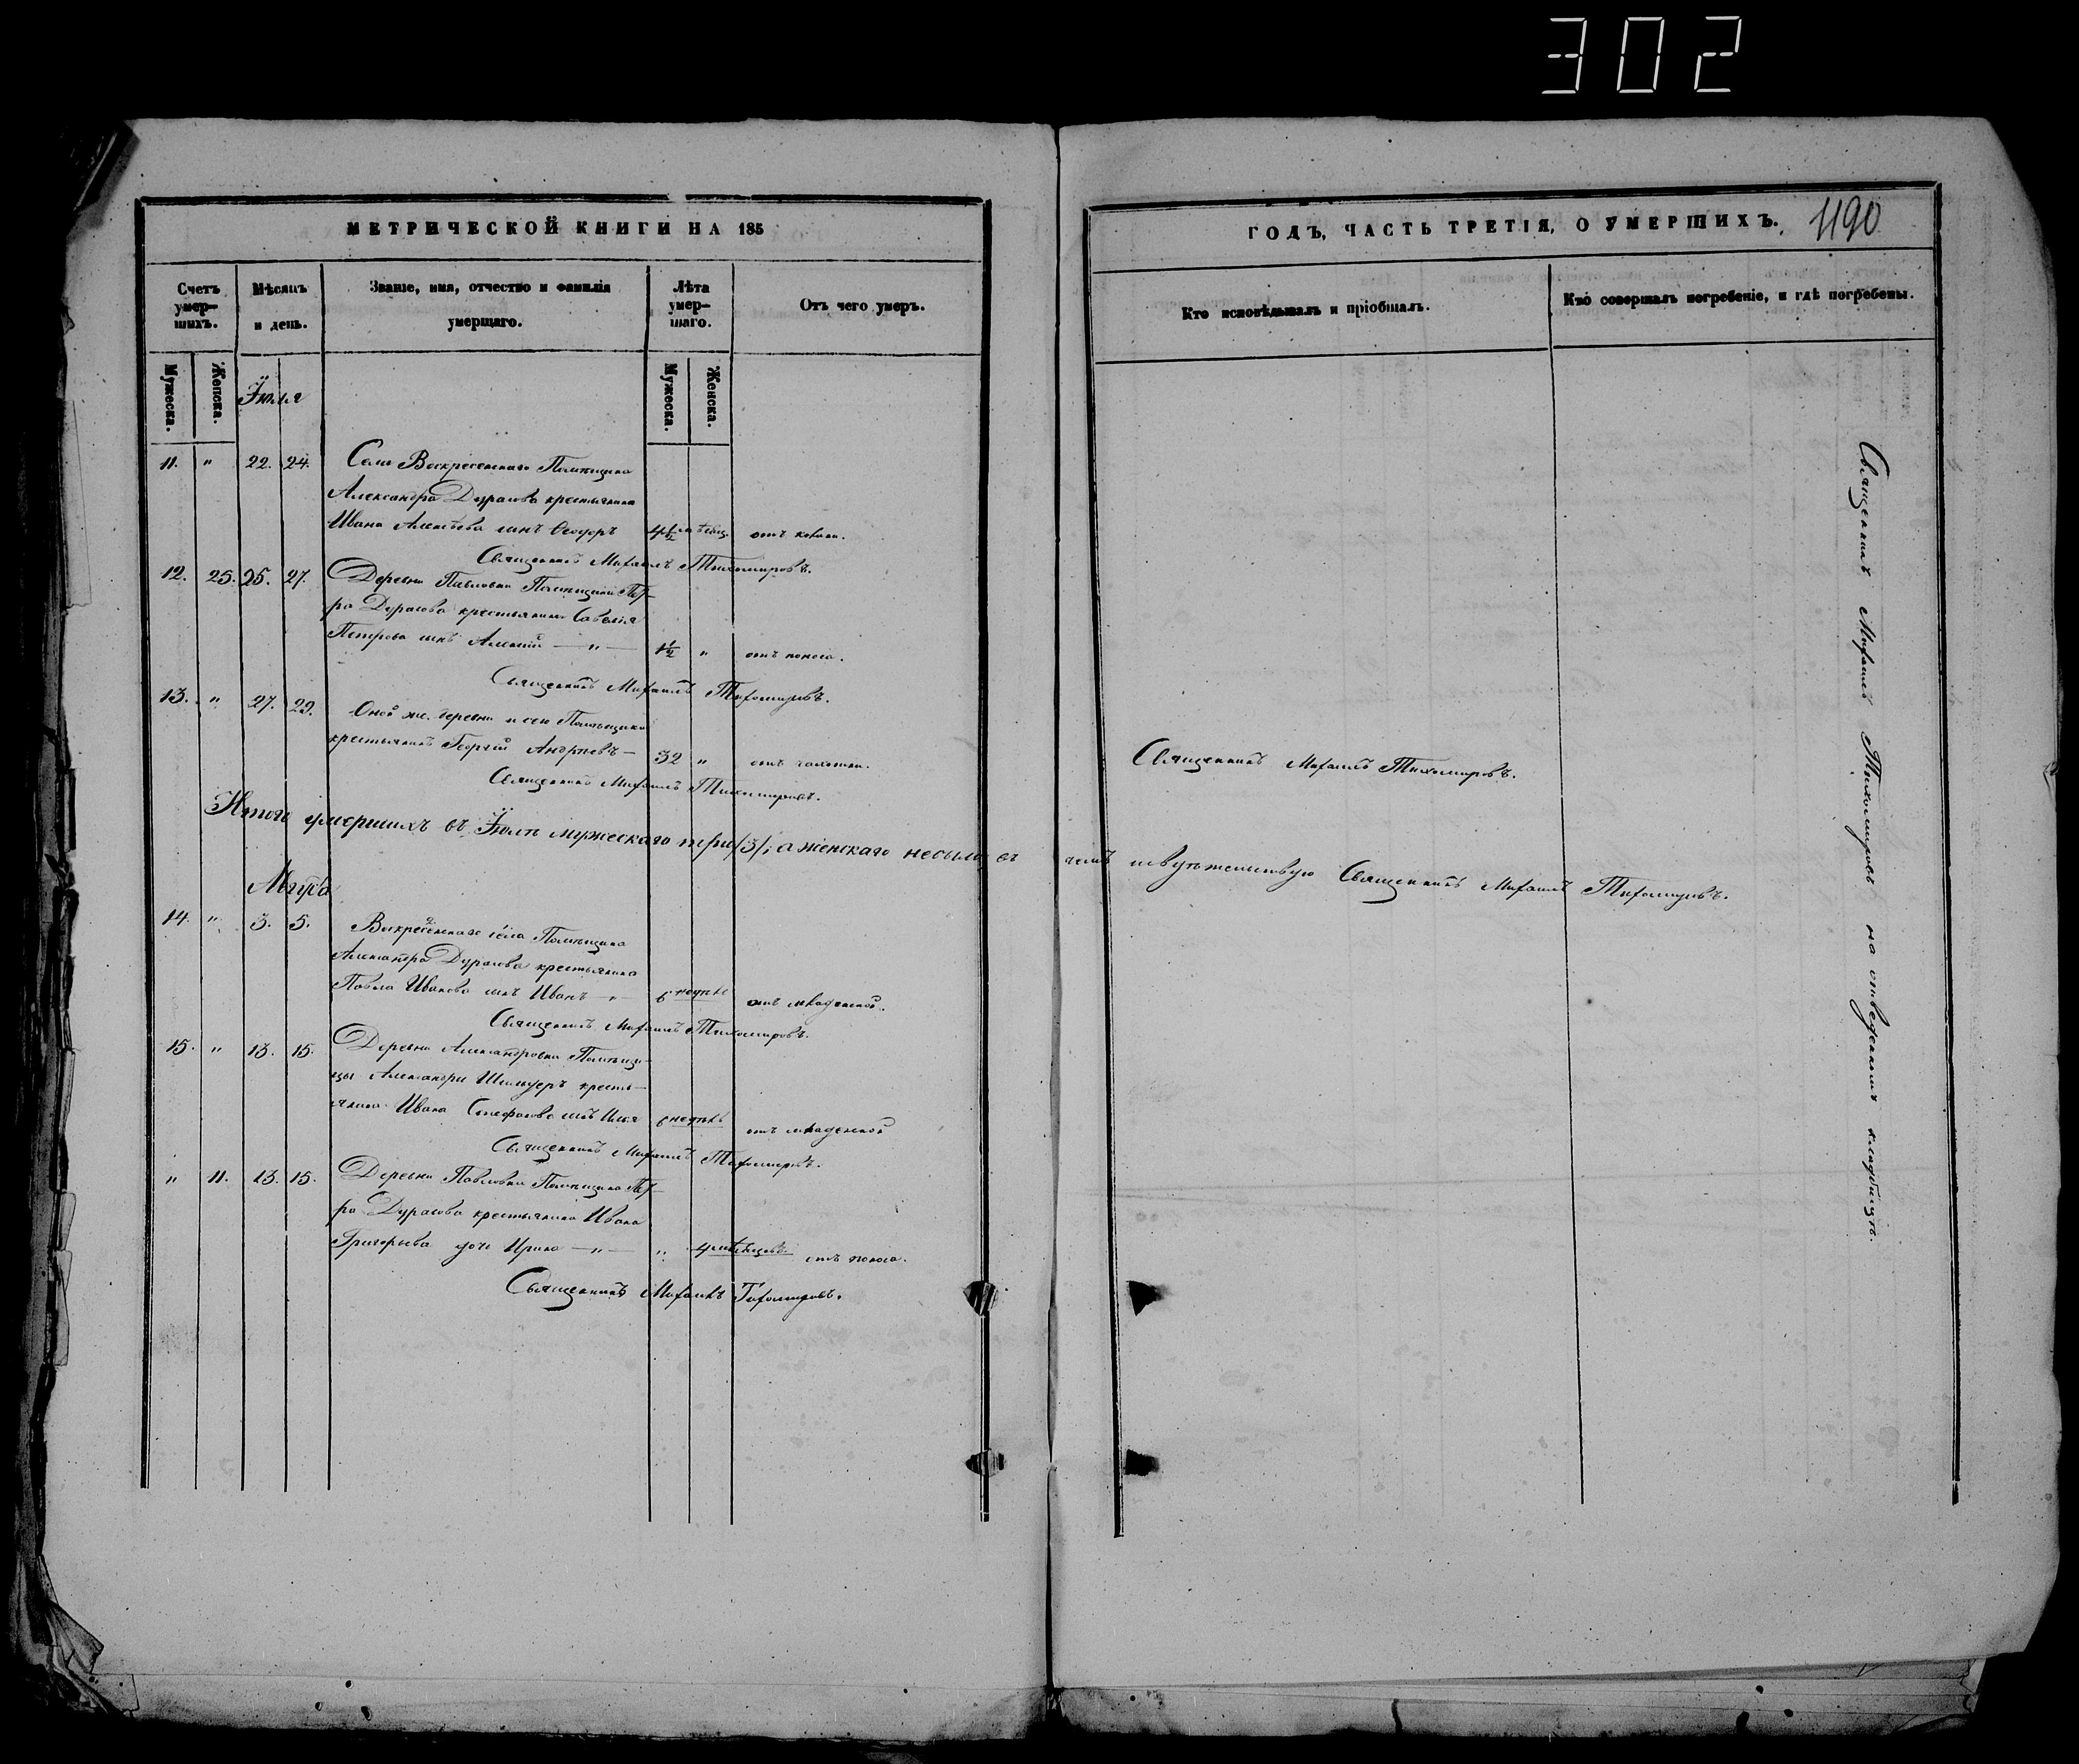 302
МЕТРИЧЕСКОЙ КНИГИ НА 185
ГОДЪ, ЧАСТЬ ТРЕТІЯ, О УМЕРШИХЪ.
1190
Счетъ умер-шихъ.
Мѣсяцъ и день.
Званіе, имя, отчество и фамилія умершаго.
Лѣта умер-шаго.
Отъ чего умеръ.
Кто исповѣдывалъ и пріобщалъ.
Кто совершалъ погребеніе, и гдѣ погребены.
Мужеска.
Женска.
Мужеска.
Женска.
Іюля
11. " 22. 24.
Села Воскресенскаго Помѣщика
Александра Дурасова крестьянина
Ивана Алексѣева сынъ Ѳеодоръ 4½ мѣсяц.
Священникъ Михаилъ Тихомировъ.
12. 25. 25. 27.
Деревни Павловки Помѣщика Пет-
ра Дурасова крестьянина Савелія
Петрова сынъ Алексій — " — 1½ " отъ поноса.
Священникъ Михаилъ Тихомировъ.
13. " 27. 29.
Оной же деревни и сего Помѣщика
крестьянинъ Георгій Андреевъ — 32 " отъ чахотки.
Священникъ Михаилъ Тихомировъ.
Священникъ Михаилъ Тихомировъ.
Итого умершихъ въ Іюлѣ мужескаго три /3/; а женскаго небыло въ чемъ и свидѣтельствую Священникъ Михаилъ Тихомировъ.
Августа
14. " 3. 5.
Воскресенскаго села Помѣщика
Александра Дурасова крестьянина
Павла Иванова сынъ Иванъ — " — 6 недѣль отъ младенской.
Священникъ Михаилъ Тихомировъ.
15. " 13. 15.
Деревни Александровки Помѣщи-
цы Александры кресть-
янина Ивана Стефанова сынъ Илья 6 недѣль отъ младенской
Священникъ Михаилъ Тихомировъ.
" 11. 13. 15.
Деревни Павловки Помѣщика Пет-
ра Дурасова крестьянина Ивана
Григорьева дочь Ирина — " — " 4 мѣсяцовъ отъ поноса.
Священникъ Михаилъ Тихомировъ.
Священникъ Михаилъ Тихомировъ на отведенномъ кладбищѣ.